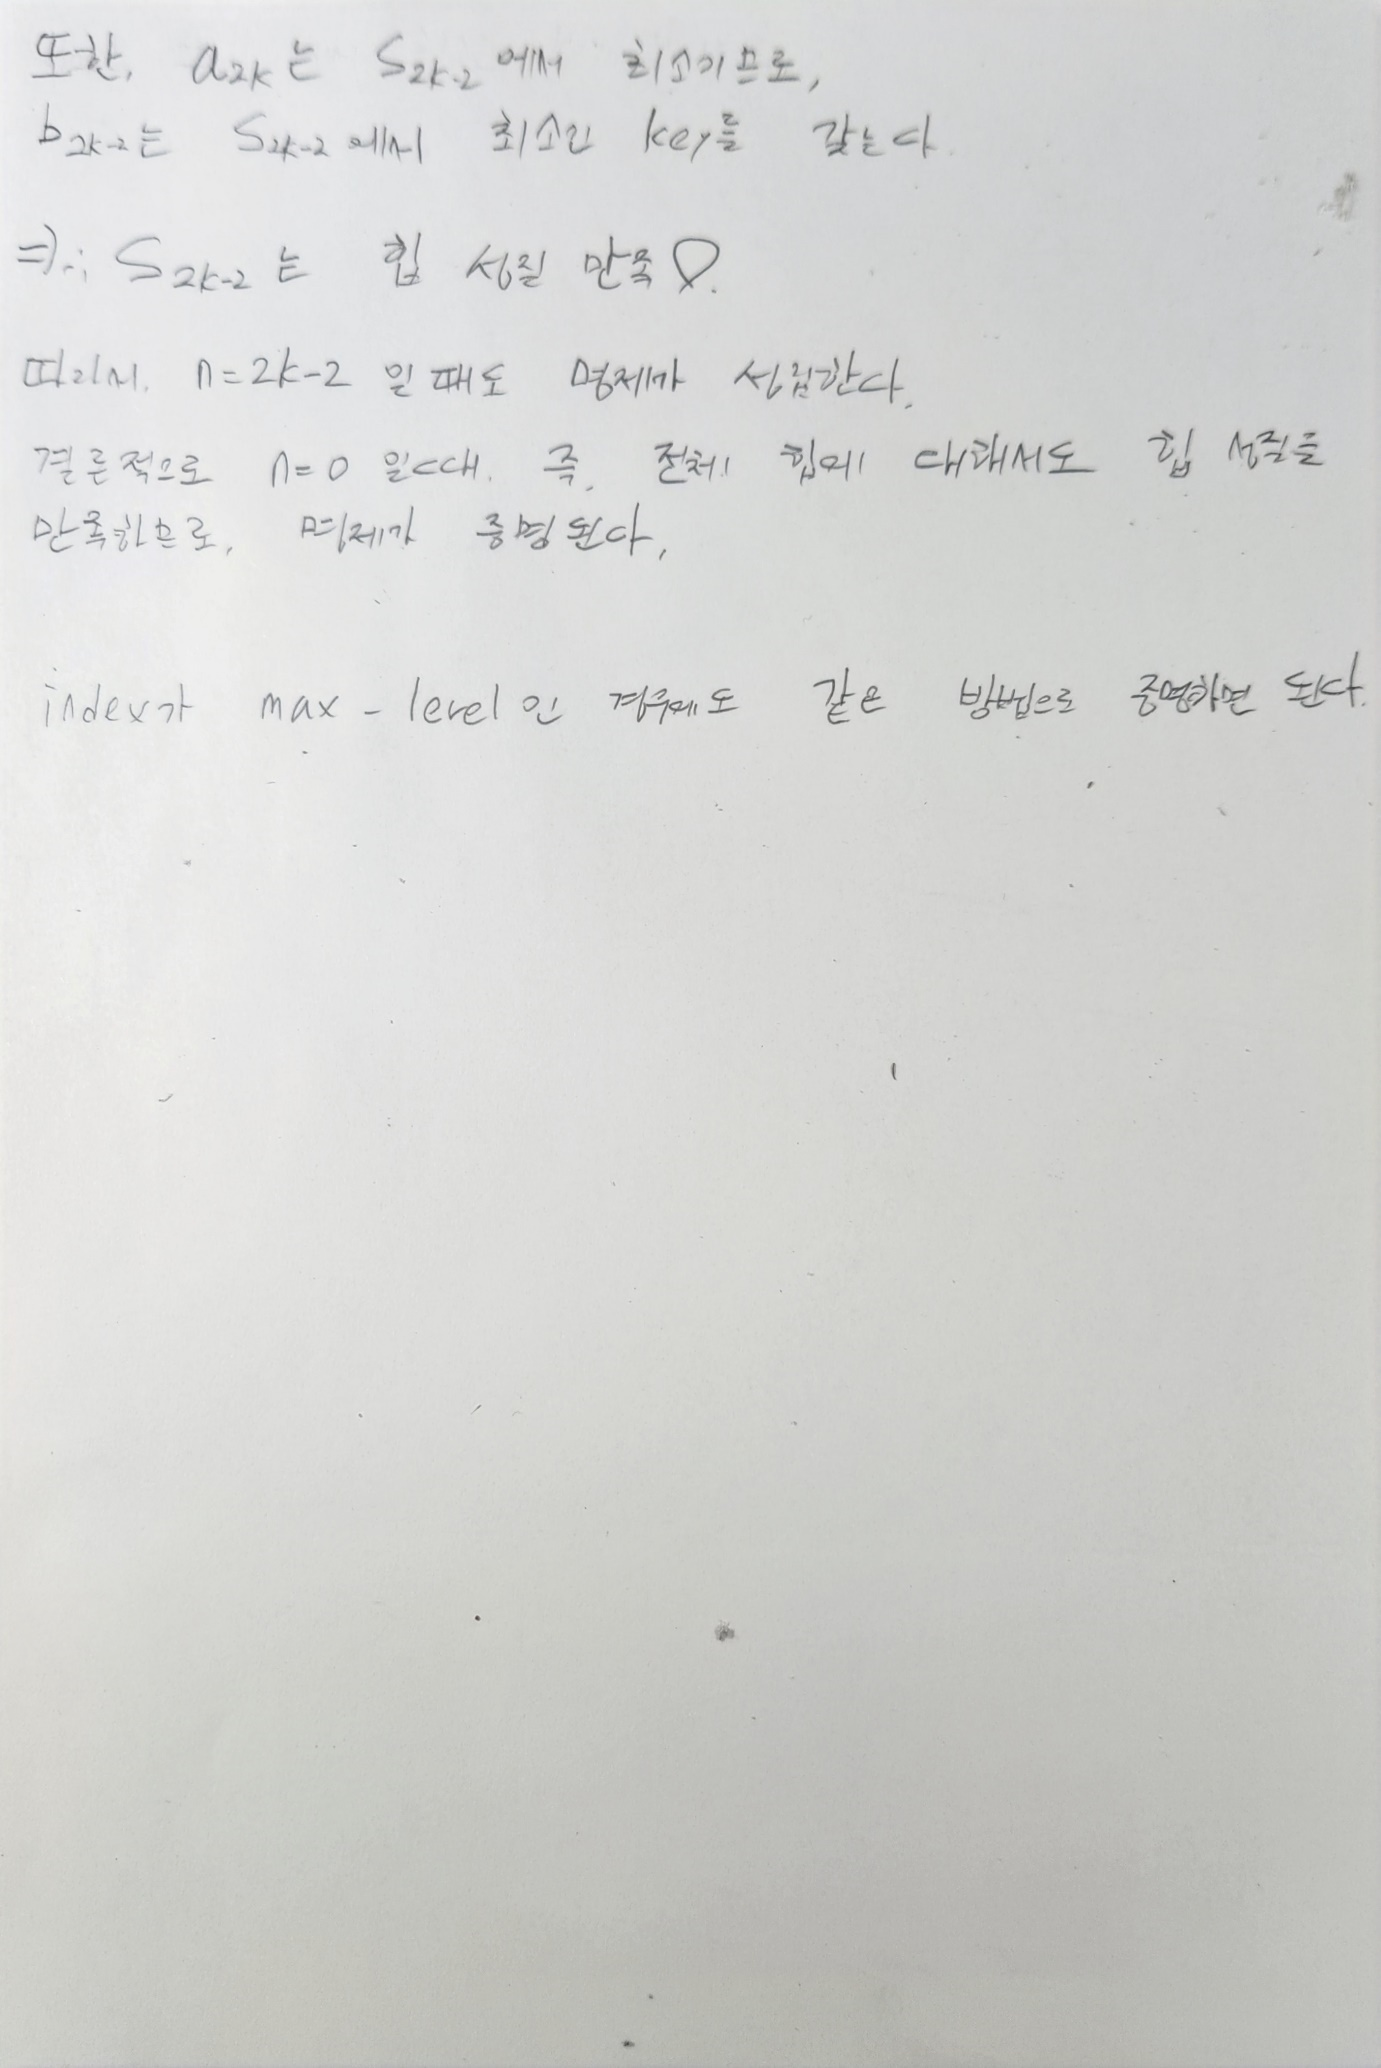 또한, a₂ₖ는 S₂ₖ₋₂에서 최소이므로,
b₂ₖ₋₂는 S₂ₖ₋₂에서 최소인 key를 갖는다.
⇒∴ S₂ₖ₋₂는 힙 성질 만족.
따라서, n=2k-2 일 때도 명제가 성립한다.
결론적으로 n=0 일때, 즉, 전체 힙에 대해서도 힙 성질을
만족하므로, 명제가 증명 된다.
index가 max-level인 경우에도 같은 방법으로 증명하면 된다.